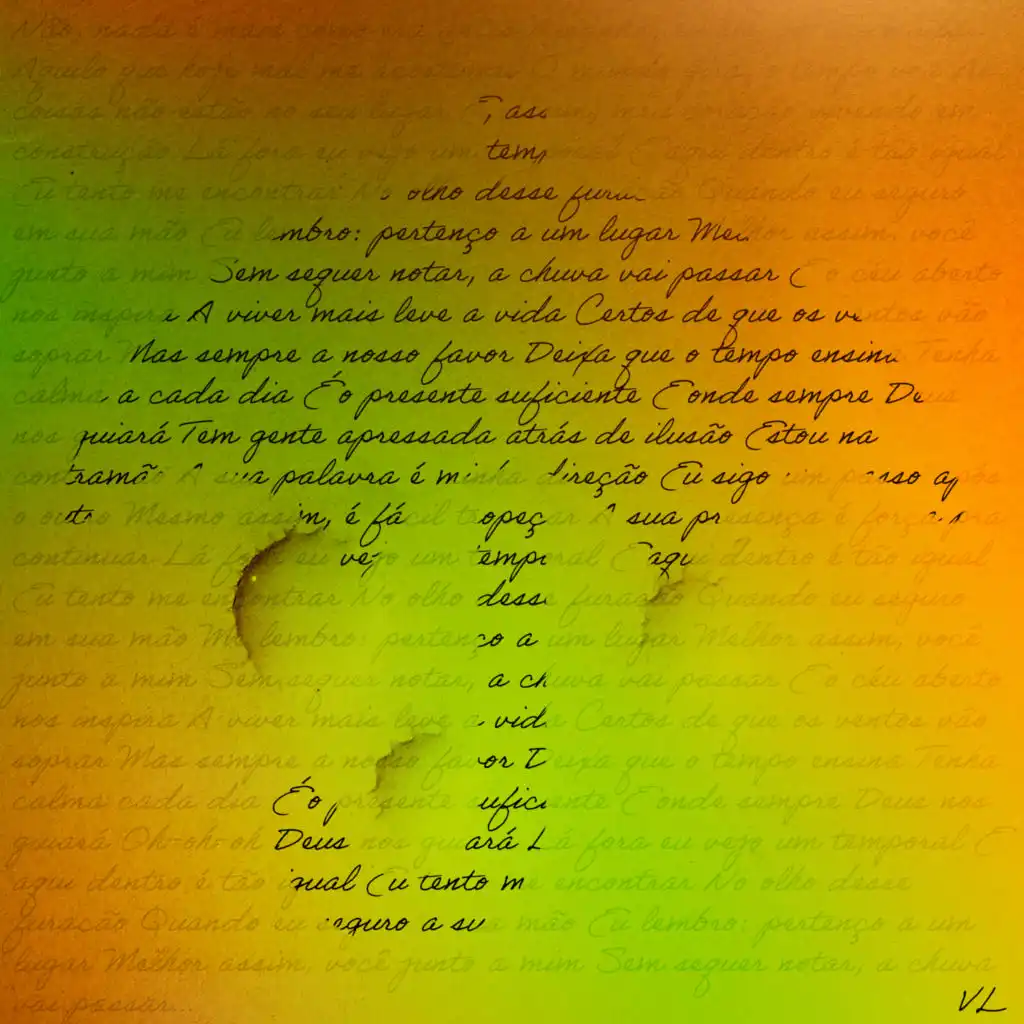 Não, nada é mais como era
Aquilo que hoje mal me O tempo
coisas não estão no seu lugar E, assim, meu coração vivendo em
construção Lá fora eu vejo um temporal E aqui dentro é tão igual
Eu tento me encontrar No olho desse furacão Quando eu seguro
em sua mão Eu lembro: pertenço a um lugar Melhor assim, você
junto a mim Sem sequer notar, a chuva vai passar E o céu aberto
nos inspira A viver mais leve a vida Certos de que os ventos vão
soprar Mas sempre a nosso favor Deixa que o tempo ensina Tenha
calma, a cada dia É o presente suficiente E onde sempre Deus
nos guiará Tem gente apressada atrás de ilusão Estou na
contramão A sua palavra é minha direção Eu sigo um passo após
o outro Mesmo assim, é fácil tropeçar A sua presença é força pra
continuar Lá fora eu vejo um temporal E aqui dentro é tão igual
Eu tento me encontrar No olho desse furacão Quando eu seguro
em sua mão Me lembro: pertenço a um lugar Melhor assim, você
junto a mim Sem sequer notar, a chuva vai passar E o céu aberto
nos inspira A viver mais leve a vida Certos de que os ventos vão
soprar Mas sempre a nosso favor Deixa que o tempo ensina Tenha
calma cada dia É o presente suficiente E onde sempre Deus nos
guiará Oh-oh-oh Deus nos guiará Lá fora eu vejo um temporal E
aqui dentro é tão igual Eu tento me encontrar No olho desse
furacão Quando eu seguro a sua mão Eu lembro: pertenço a um
lugar Melhor assim, você junto a mim Sem sequer notar, a chuva
vai passar...
VL